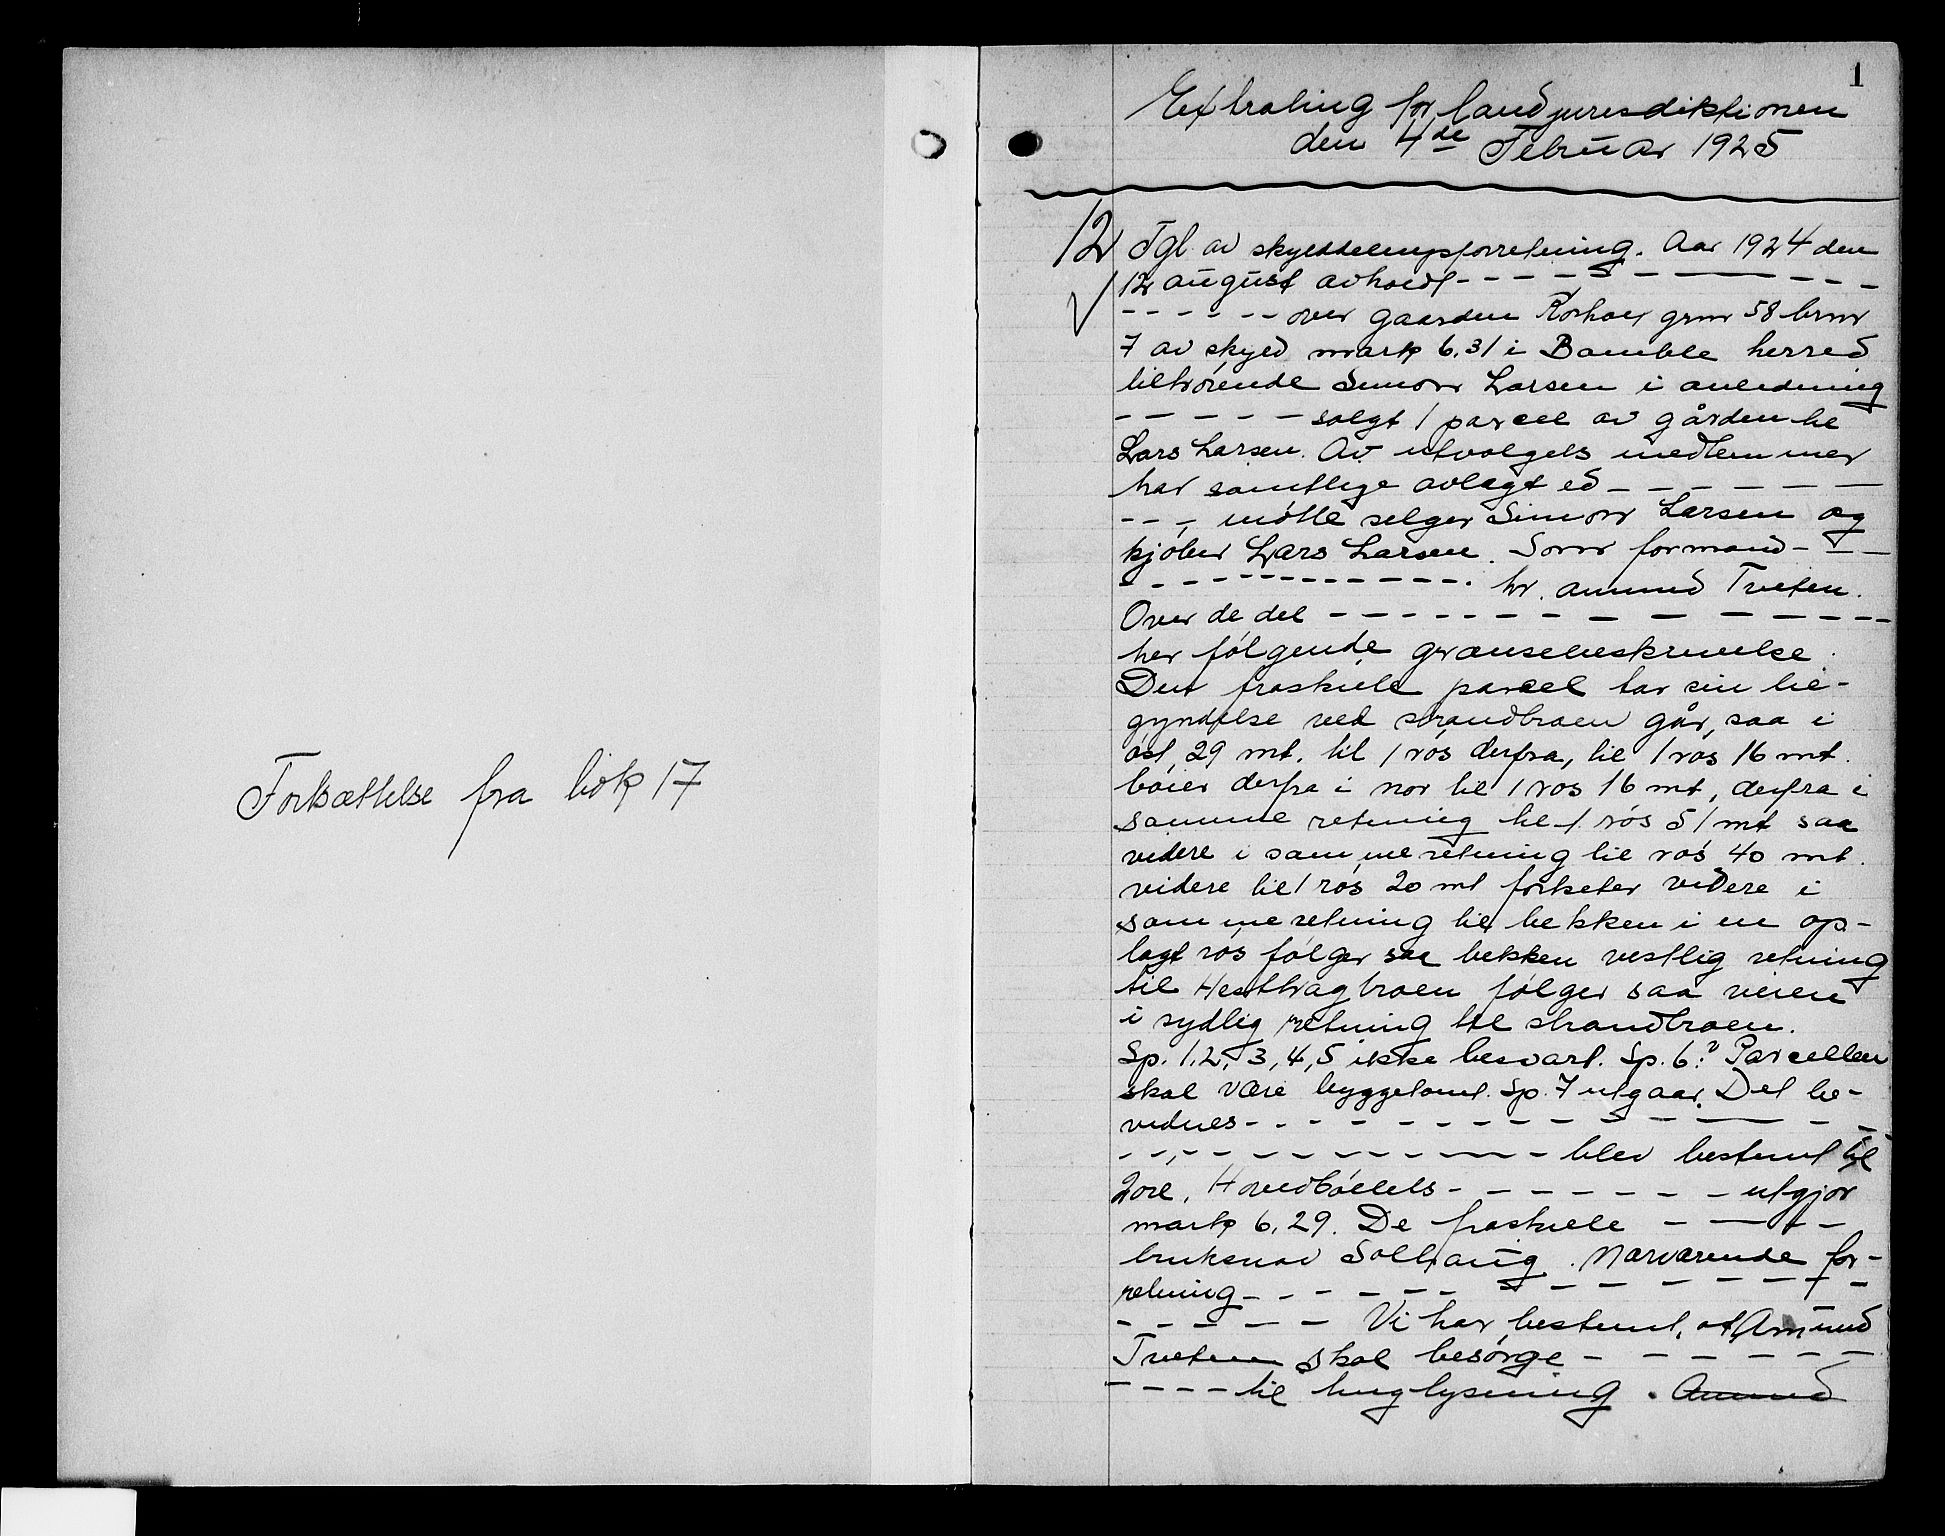 Fortsættelse fra bok 17
1
Extrating for landjuresdiktionen
den 4de Februar 1925
12 Tgl. av skylddelingsforretning. Aar 1924 den
12 august avholdt - - - - - - - - - -
- - - - - - over gaarden Rørholt grnr 58 brnr
7 av skyld mark 6.31 i Bamble herred
tilhørende Simon Larsen i anledning
- - - - - - solgt 1 parcel av gården til
Lars Larsen. Av utvalgets medlemmer
har samtlige avlagt ed - - - - - -
- - - møtte selger Simon Larsen og
kjøber Lars Larsen. Som formand - - -
- - - - - - - - - - - - - hr. Amund Tveten.
Over de del - - - - - - - - - - - -
her følgende grænsebeskrivelse.
Den fraskilte parcel tar sin be-
gyndelse ved strandbroen går, saa i
øst, 29 mt. til 1 røs derfra, til 1 røs 16 mt.
bøier derfra i nor til 1 røs 16 mt, derfra i
samme retning til 1 røs 51 mt saa
videre i samme retning til røs 40 mt.
videre til 1 røs 20 mt fortseter videre i
samme retning til bekken i en op-
lagt røs følger saa bekken vestlig retning
til Hesthagbroen følger saa veien
i sydlig retning til strandbroen.
Sp. 1, 2, 3, 4, 5 ikke besvart. Sp. 6: Parcellen
skal være byggetomt. Sp. 7 utgaar. Det be-
vidnes - - - - - - - - - - - - -
- - - - - - - - - - - - - blev bestemt til
2 øre. Hovedbølets - - - - - - - utgjør
mark 6.29. De fraskilte - - - - -
bruksnav Solhaug. Nærværende for-
retning - - - - - - - - - - - - -
- - - - - - Vi har bestemt, at Amund
Tveten skal besørge - - - - - -
- - - - til tinglysning. Amund